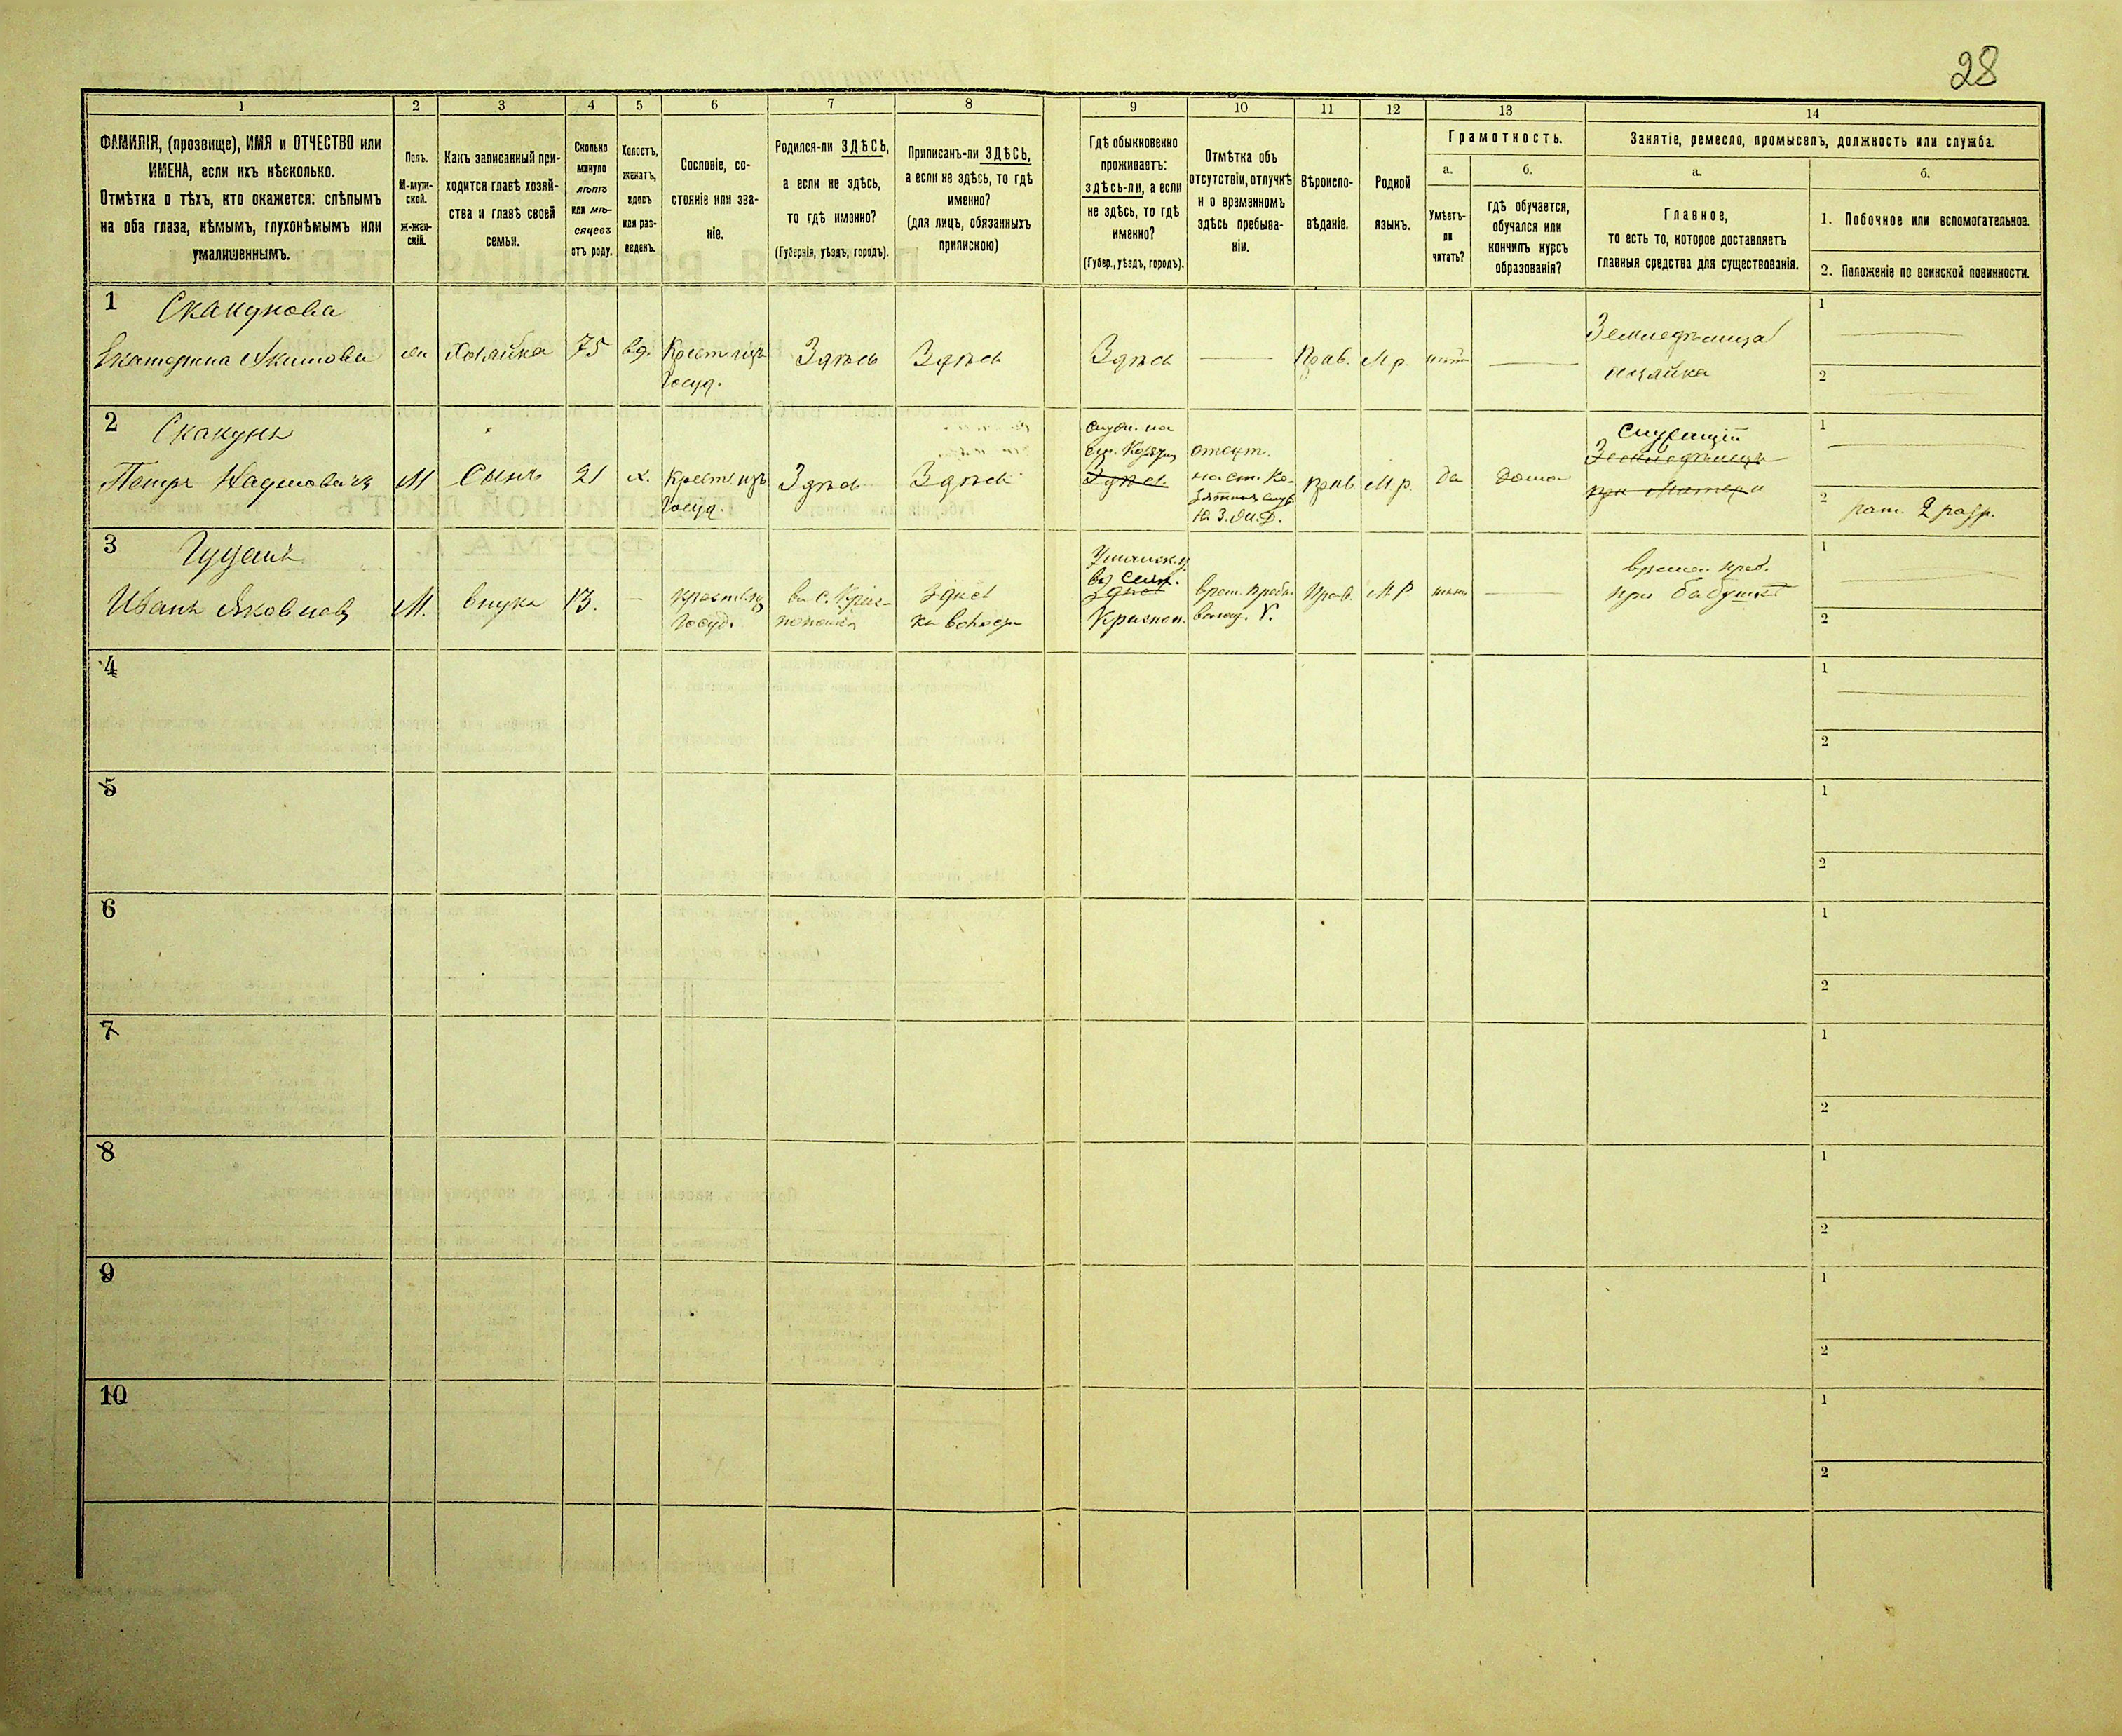 28
1 2 3 4 5 6 7 8 9 10 11 12 13 14
ФАМИЛІЯ, (прозвище), ИМЯ и ОТЧЕСТВО или
ИМЕНА, если ихъ нѣсколько.
Отмѣтка о тѣхъ, кто окажется: слѣпымъ
на оба глаза, нѣмымъ, глухонѣмымъ или
умалишеннымъ.
Полъ.
М-муж-
ской.
Ж-жен-
скій.
Какъ записанный при-
ходится главѣ хозяй-
ства и главѣ своей
семьи.
Сколько
минуло
лѣтъ
или мѣ-
сяцевъ
отъ роду.
Холостъ,
женатъ,
вдовъ
или раз-
веденъ.
Сословіе, со-
стояніе или зва-
ніе.
Родился-ли ЗДѢСЬ,
а если не здѣсь,
то гдѣ именно?
(Губернія, уѣздъ, городъ).
Приписанъ-ли ЗДѢСЬ,
а если не здѣсь, то гдѣ
именно?
(для лицъ, обязанныхъ
припискою)
Гдѣ обыкновенно
проживаетъ:
здѣсь-ли, а если
не здѣсь, то гдѣ
именно?
(Губер., уѣздъ, городъ).
Отмѣтка объ
отсутствіи, отлучкѣ
и о временномъ
здѣсь пребыва-
ніи.
Вѣроиспо-
вѣданіе.
Родной
языкъ.
Грамотность.
а.
Умѣетъ-
ли
читать?
б.
гдѣ обучается,
обучался или
кончилъ курсъ
образованія?
Занятіе, ремесло, промыселъ, должность или служба.
а.
Главное,
то есть то, которое доставляетъ
главныя средства для существованія.
б.
1. Побочное или вспомогательное.
2. Положеніе по воинской повинности.
1 Скакунова
Екатерина Акимова
жен
Хозяйка
75
вд.
Крест. изъ
Госуд.
Здѣсь
Здѣсь
Здѣсь
Прав.
Мр.
нѣтъ
Земледѣлица
хозяйка
1
2
2 Скакунъ
Петръ Наумовичъ
М
Сынъ
21
х.
Крест. изъ
Госуд.
Здѣсь
Здѣсь
служ. на
ст.
Здѣсь
отсут.
на ст. Ко-
Ю. З. Ж. Д.
Прав.
Мр.
да
дома
Служащій
Земледѣлецъ
при матери
1
2 рат. 2 разр.
3
Иванъ Яковлевъ
М.
внукъ
13.
Крест. изъ
Госуд.
въ с. Крас-
Здѣсь
Здѣсь
врем. преб.
Прав.
МР.
времен. преб.
при бабушкѣ
1
2
4
1
2
5
1
2
6
1
2
7
1
2
8
1
2
9
1
2
10
1
2